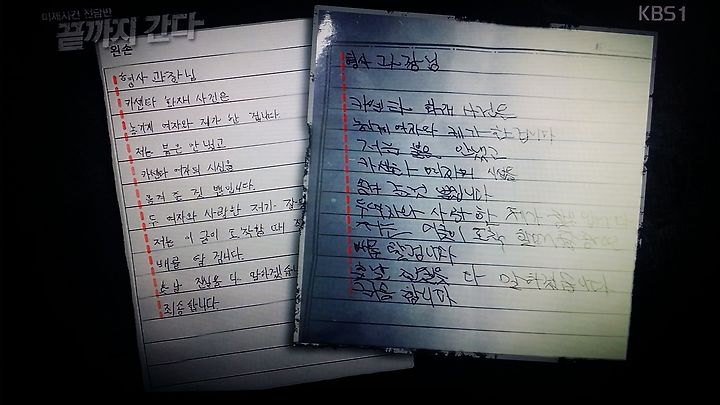 미제사건 전담반
끝까지 간다
KBS1
왼손
형사 과장님
카센타 화재 사건은
농거계 여자와 제가 한 겁니다
저는 불은 안 냈고
카센타 여자의 시신을
옮겨 준 것 뿐입니다.
두 여자와 사랑한 제가
저는 이 글이 도착할 때
배를 탈 겁니다.
훗날 진실을 다 말하겠습니
죄송합니다.
형사 과장님
카센타 화재 사건은
여자와 제가 한 겁니다
저는 불은 안 냈고
카센타 여자의 시신을
옮겨 준 것 뿐입니다
두 여자와 사랑한 제가
저는 이 글이 도착 할 때
배를 탈 겁니다
훗날 진실을 다 말하겠습니다
죄송합니다